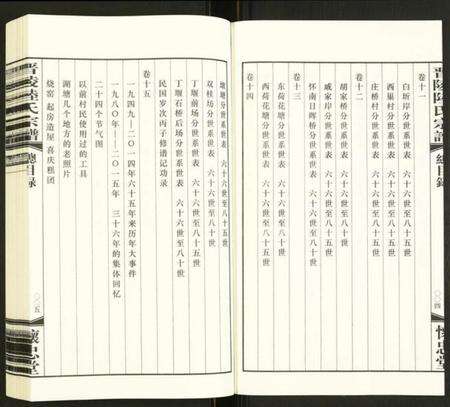 晋陵陆氏宗谱
總目録
〇〇四
懷忠堂
卷十一
白圻岸分世系世表 六十六世至八十世
西崐村分世系世表 六十六世至八十五世
庄桥村分世系世表 六十六世至八十五世
卷十二
胡家桥分世系世表 六十六世至八十世
戚家岸分世系世表 六十六世至八十世
怀南日晖桥分世系世表 六十六世至八十世
卷十三
东荷花塘分世系世表 六十六世至八十五世
西荷花塘分世系世表 六十六世至八十五世
卷十四
塘塘分世系世表 六十六世至八十五世
双柱场分世系世表 六十六世至八十世
丁堰前场分世系世表 六十六世至八十五世
丁堰石桥后场分世系世表 六十六世至八十世
民国岁次丙子修谱记功录
卷十五
一九四九—二〇一四年六十五年来历年大事件
一九八〇年—二〇一五年 三十六年的集体回忆
二十四个节气图
以前村民使用过的工具
湖塘几个地方的老照片
烧窑 起房造屋 喜庆粗团
晋陵陆氏宗谱
總目録
〇〇五
懷忠堂